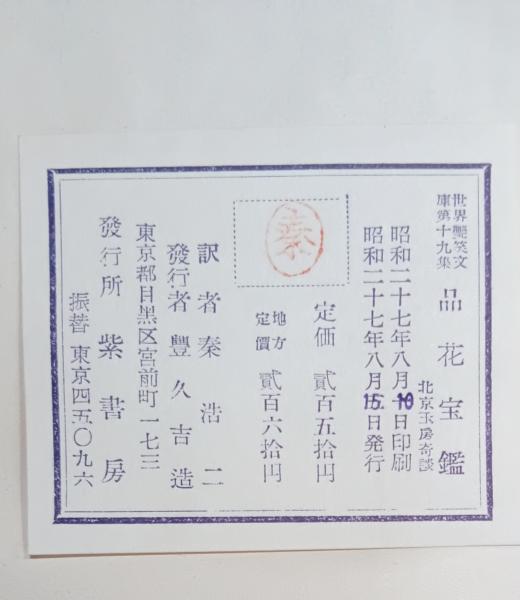 世界艶笑文
庫第十九集
品花宝鑑
北京玉房奇談
昭和二十七年八月10日印刷
昭和二十七年八月15日発行
定価 貳百五拾円
地方
定價 貳百六拾円
秦
訳者 秦浩二
發行者 豐久吉造
東京都目黒区宮前町一七三
發行所 紫書房
振替 東京四五〇九六